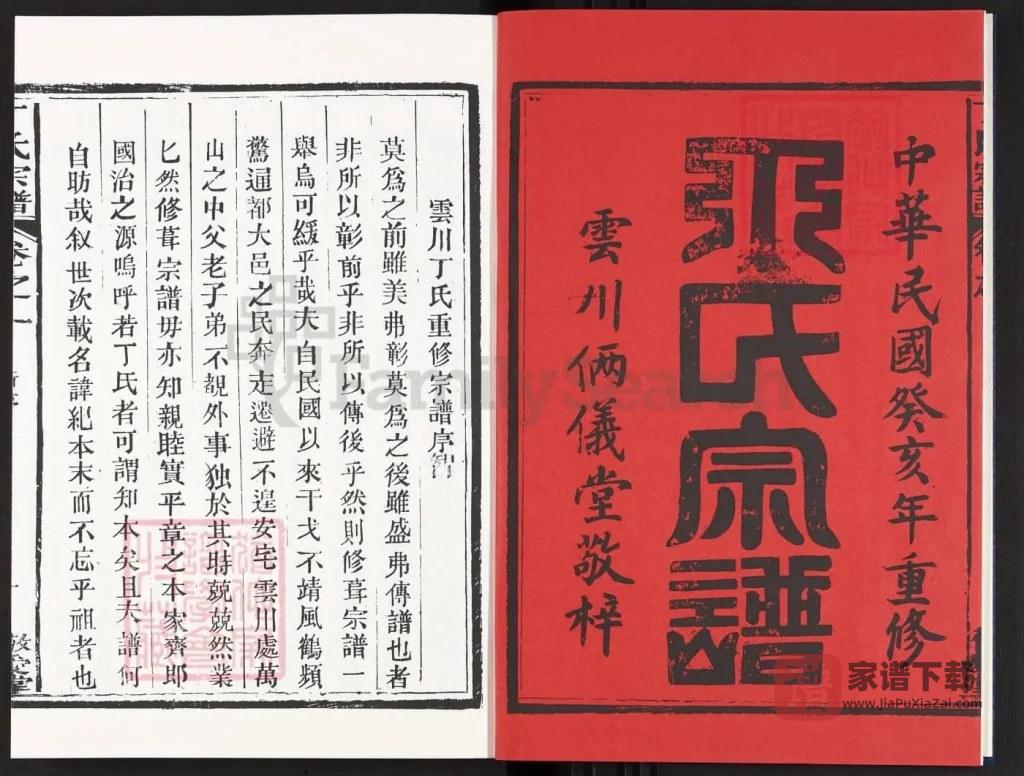 中華民國癸亥年重修
氏宗譜
雲川俩儀堂敬梓
雲川丁氏重修宗譜序智
莫爲之前雖美弗彰莫爲之後雖盛弗傳譜也者
非所以彰前乎非所以傳後乎然則修葺宗譜一
舉烏可緩乎哉夫自民國以來干戈不靖風鶴頻
驚通都大邑之民奔走遷避不遑安宅雲川處萬
山之中父老子弟不覩外事独於其時兢兢然業
匕然修葺宗譜毋亦知親睦實平章之本家齊郎
國治之源嗚呼若丁氏者可謂知本矣且夫譜何
自昉哉叙世次載名諱紀本末而不忘乎祖者也
氏宗譜 卷之一
FamilySearch
家谱下载
www.JiaPuXiaZai.com